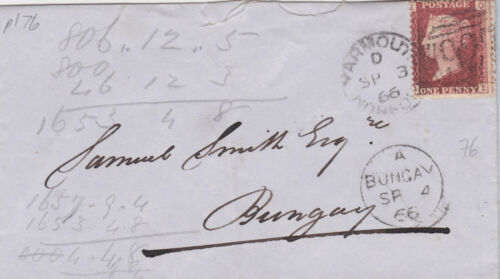 pl76
806 .. 12 .. 5
800
46 12 3
1653 4 8
POSTAGE
ONE PENNY
E
YARMOUTH
D
SP 3
66
NORFOLK
Samuel Smith Esq re
Bungay
A
BUNGAY
SP 4
66
76
1657 . 9 . 4
1653 4 8
4 . 4 . 8